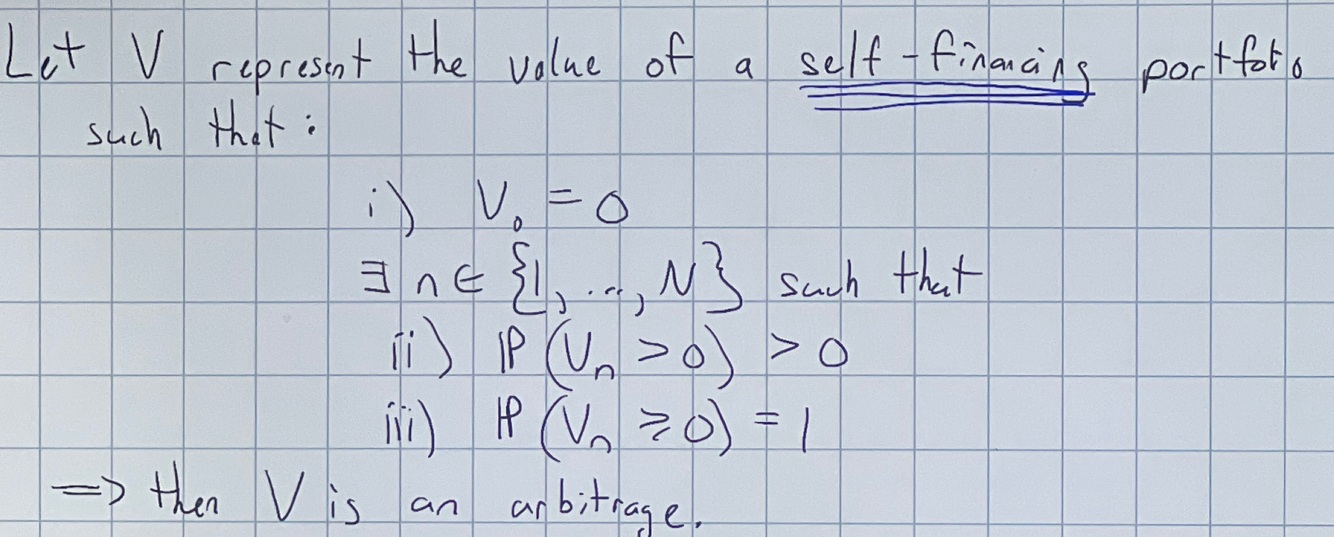 Let V represent the value of a self-financing portfolio
such that:
i) V₀ = 0
∃ n ∈ {1, ..., N} such that
ii) ℙ(Vₙ > 0) > 0
iii) ℙ(Vₙ ≥ 0) = 1
⟹ then V is an arbitrage.